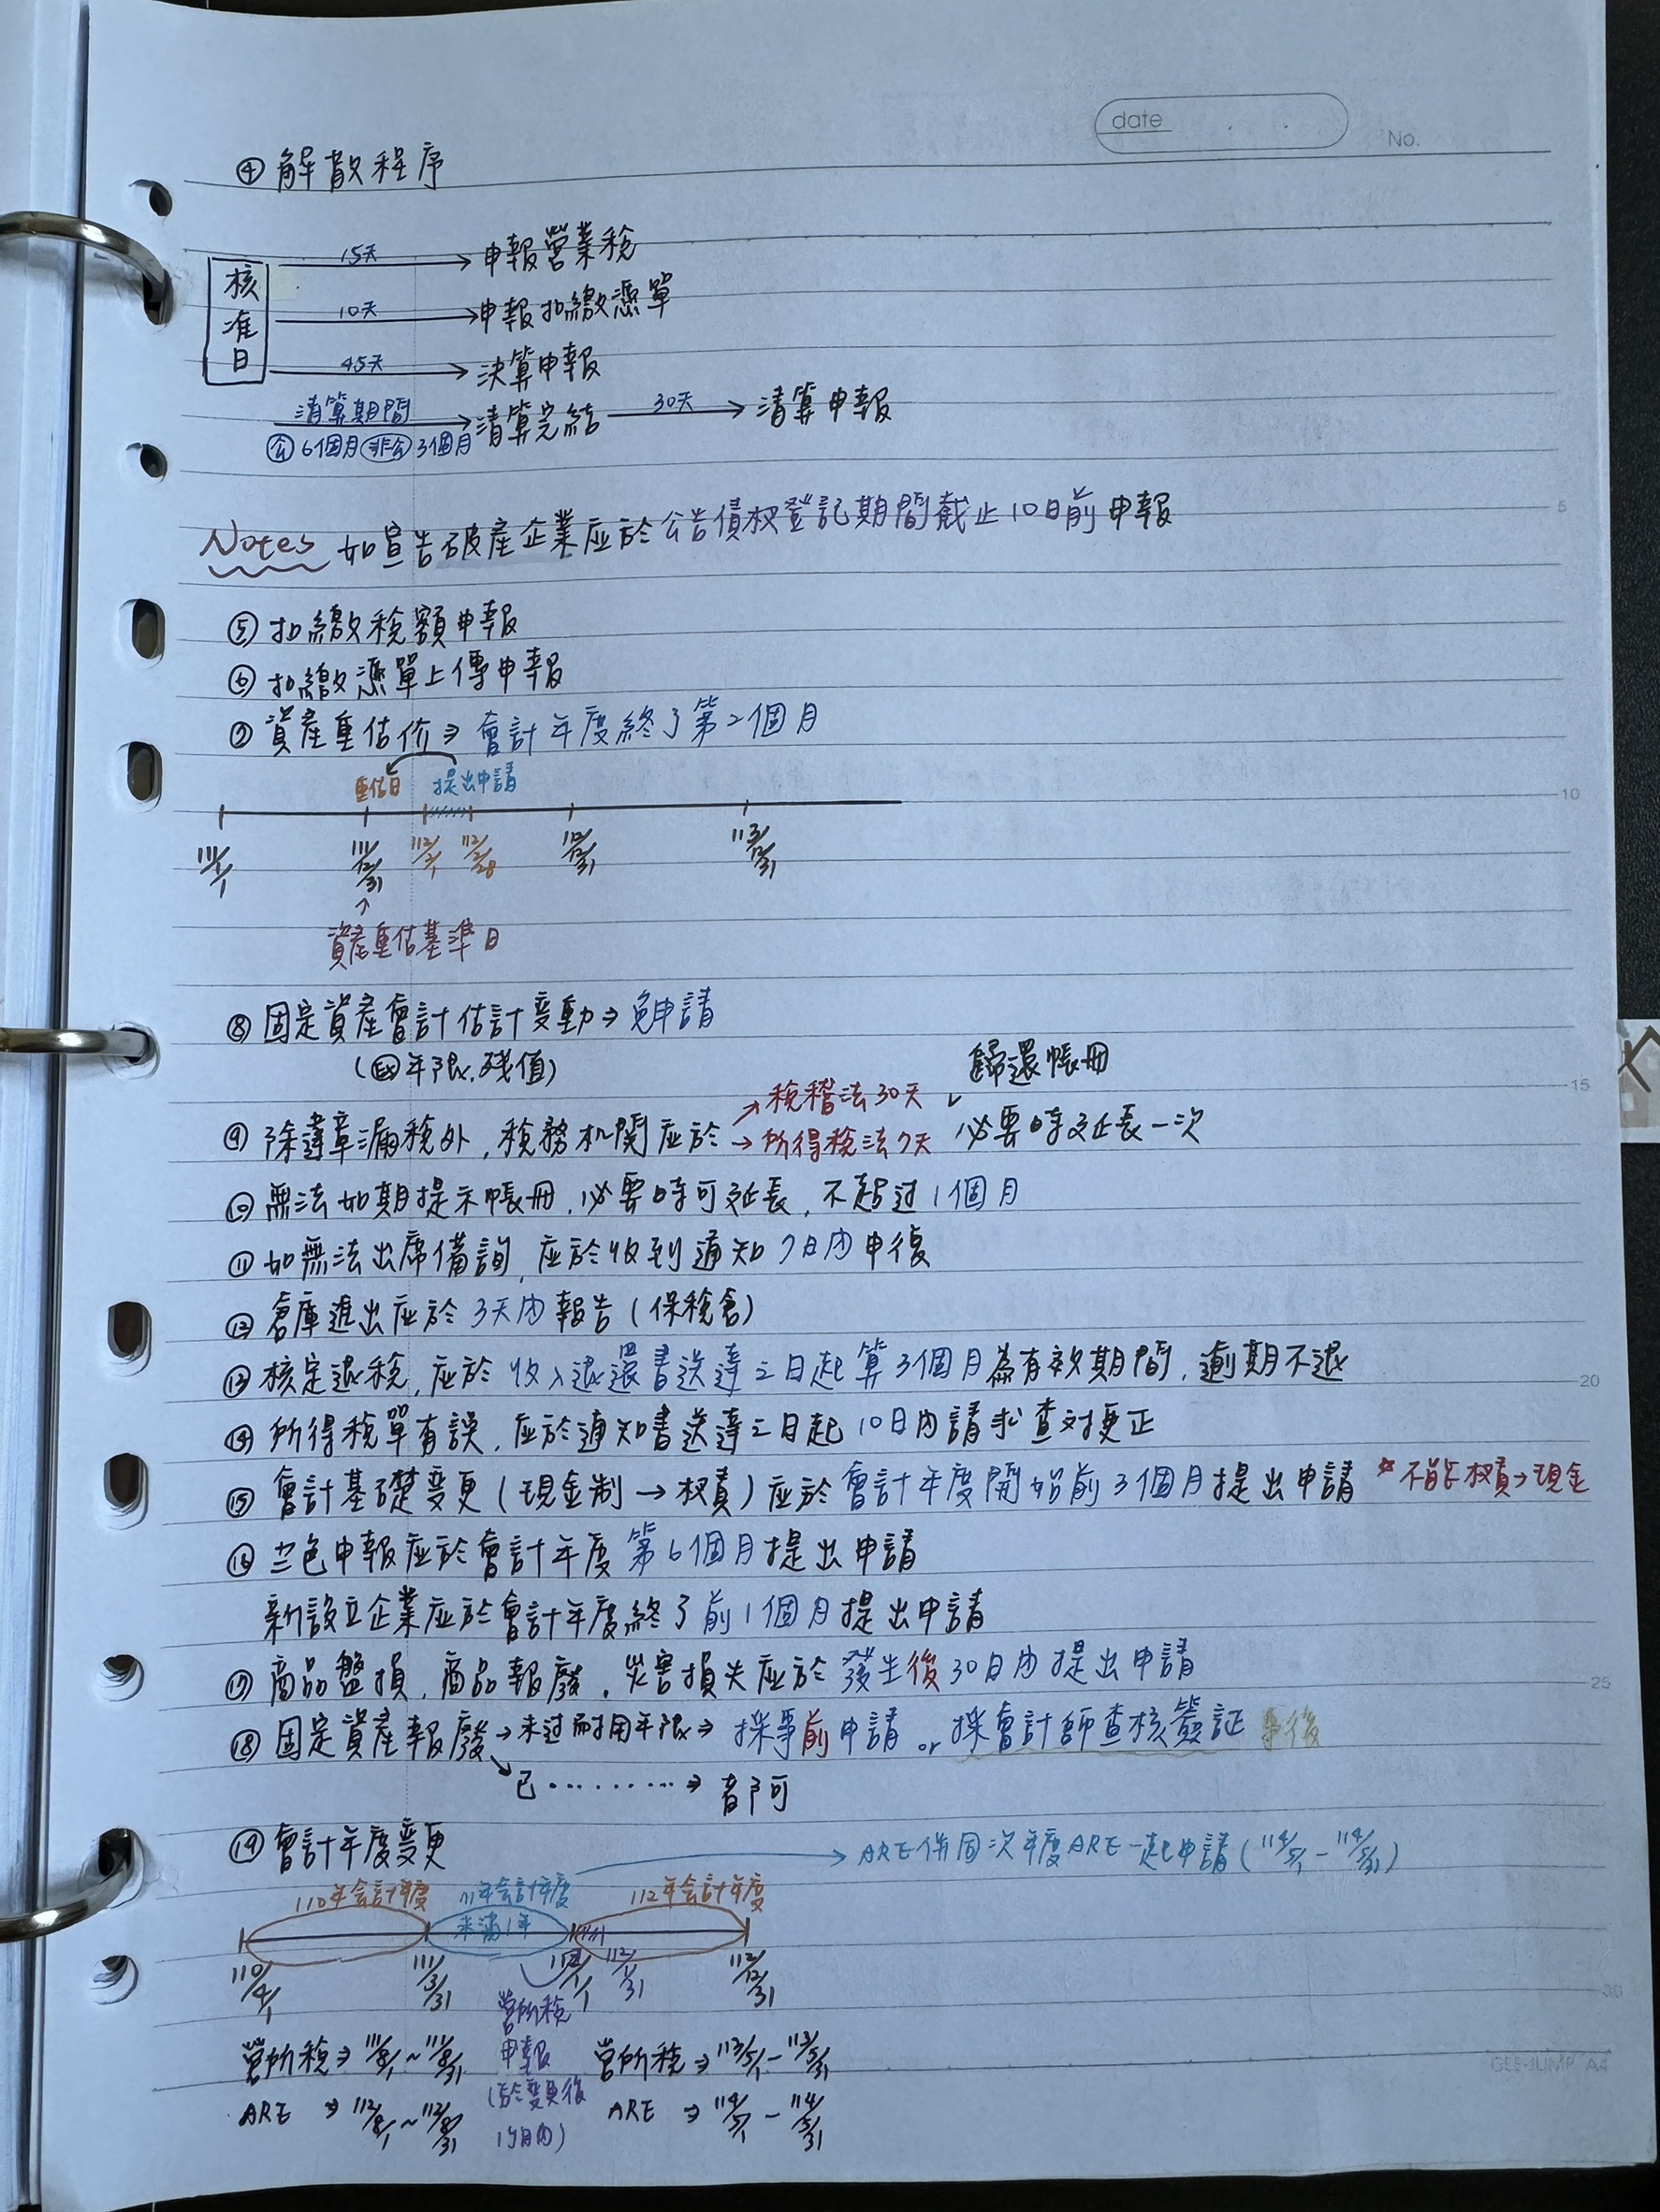 date
No.
④ 解散程序
核准日
15天 → 申報營業稅
10天 → 申報扣繳憑單
45天 → 決算申報
清算期間 → 清算完結 30天 → 清算申報
公 6個月 非公 3個月
Notes 如宣告破產企業应於公告債权登記期間截止10日前申報
5
⑤ 扣繳稅額申報
⑥ 扣繳憑單上傳申報
⑦ 資產重估价 ⇒ 會計年度終了第2個月
重估日 提出申請
10
111/1/1 111/12/31 112/2/1 112/2/28 112/12/31 113/12/31
↑
資產重估基準日
⑧ 固定資產會計估計变動 ⇒ 免申請
(EX 年限.殘值)
歸還帳冊
15
⑨ 除違章漏稅外,稅務机関应於 → 稅稽法30天 → 所得稅法7天 必要時延長一次
⑩ 無法如期提示帳冊,必要時可延長,不超过1個月
⑪ 如無法出席備詢,应於收到通知7日內申復
⑫ 倉庫進出应於3天內報告(保稅倉)
⑬ 核定退稅,应於收入退還書送達之日起算3個月為有效期間,逾期不退
20
⑭ 所得稅單有誤,应於通知書送達之日起10日內請求查对更正
⑮ 會計基礎变更(現金制→权責)应於會計年度開始前3個月提出申請 *不能权責→現金
⑯ 兰色申報应於會計年度第6個月提出申請
新設立企業应於會計年度終了前1個月提出申請
⑰ 商品盤損,商品報廢,災害損失应於發生後30日內提出申請
25
⑱ 固定資產報廢 → 未过耐用年限 ⇒ 採事前申請 or 採會計師查核簽証 事後
已.......... ⇒ 都可
⑲ 會計年度变更
→ ARE併同次年度ARE一起申請(114/5/1-114/5/31)
110年会計年度 111年会計年度 112年会計年度
未滿1年
110/4/1 111/3/31 112/1/1 112/1/31 112/12/31
30
營所稅申報(於变更後1個月內)
營所稅 ⇒ 111/8/1~111/8/31 營所稅 ⇒ 113/5/1-113/5/31
ARE ⇒ 112/8/1~112/8/31 ARE ⇒ 114/5/1-114/5/31
GLE-JUMP A4